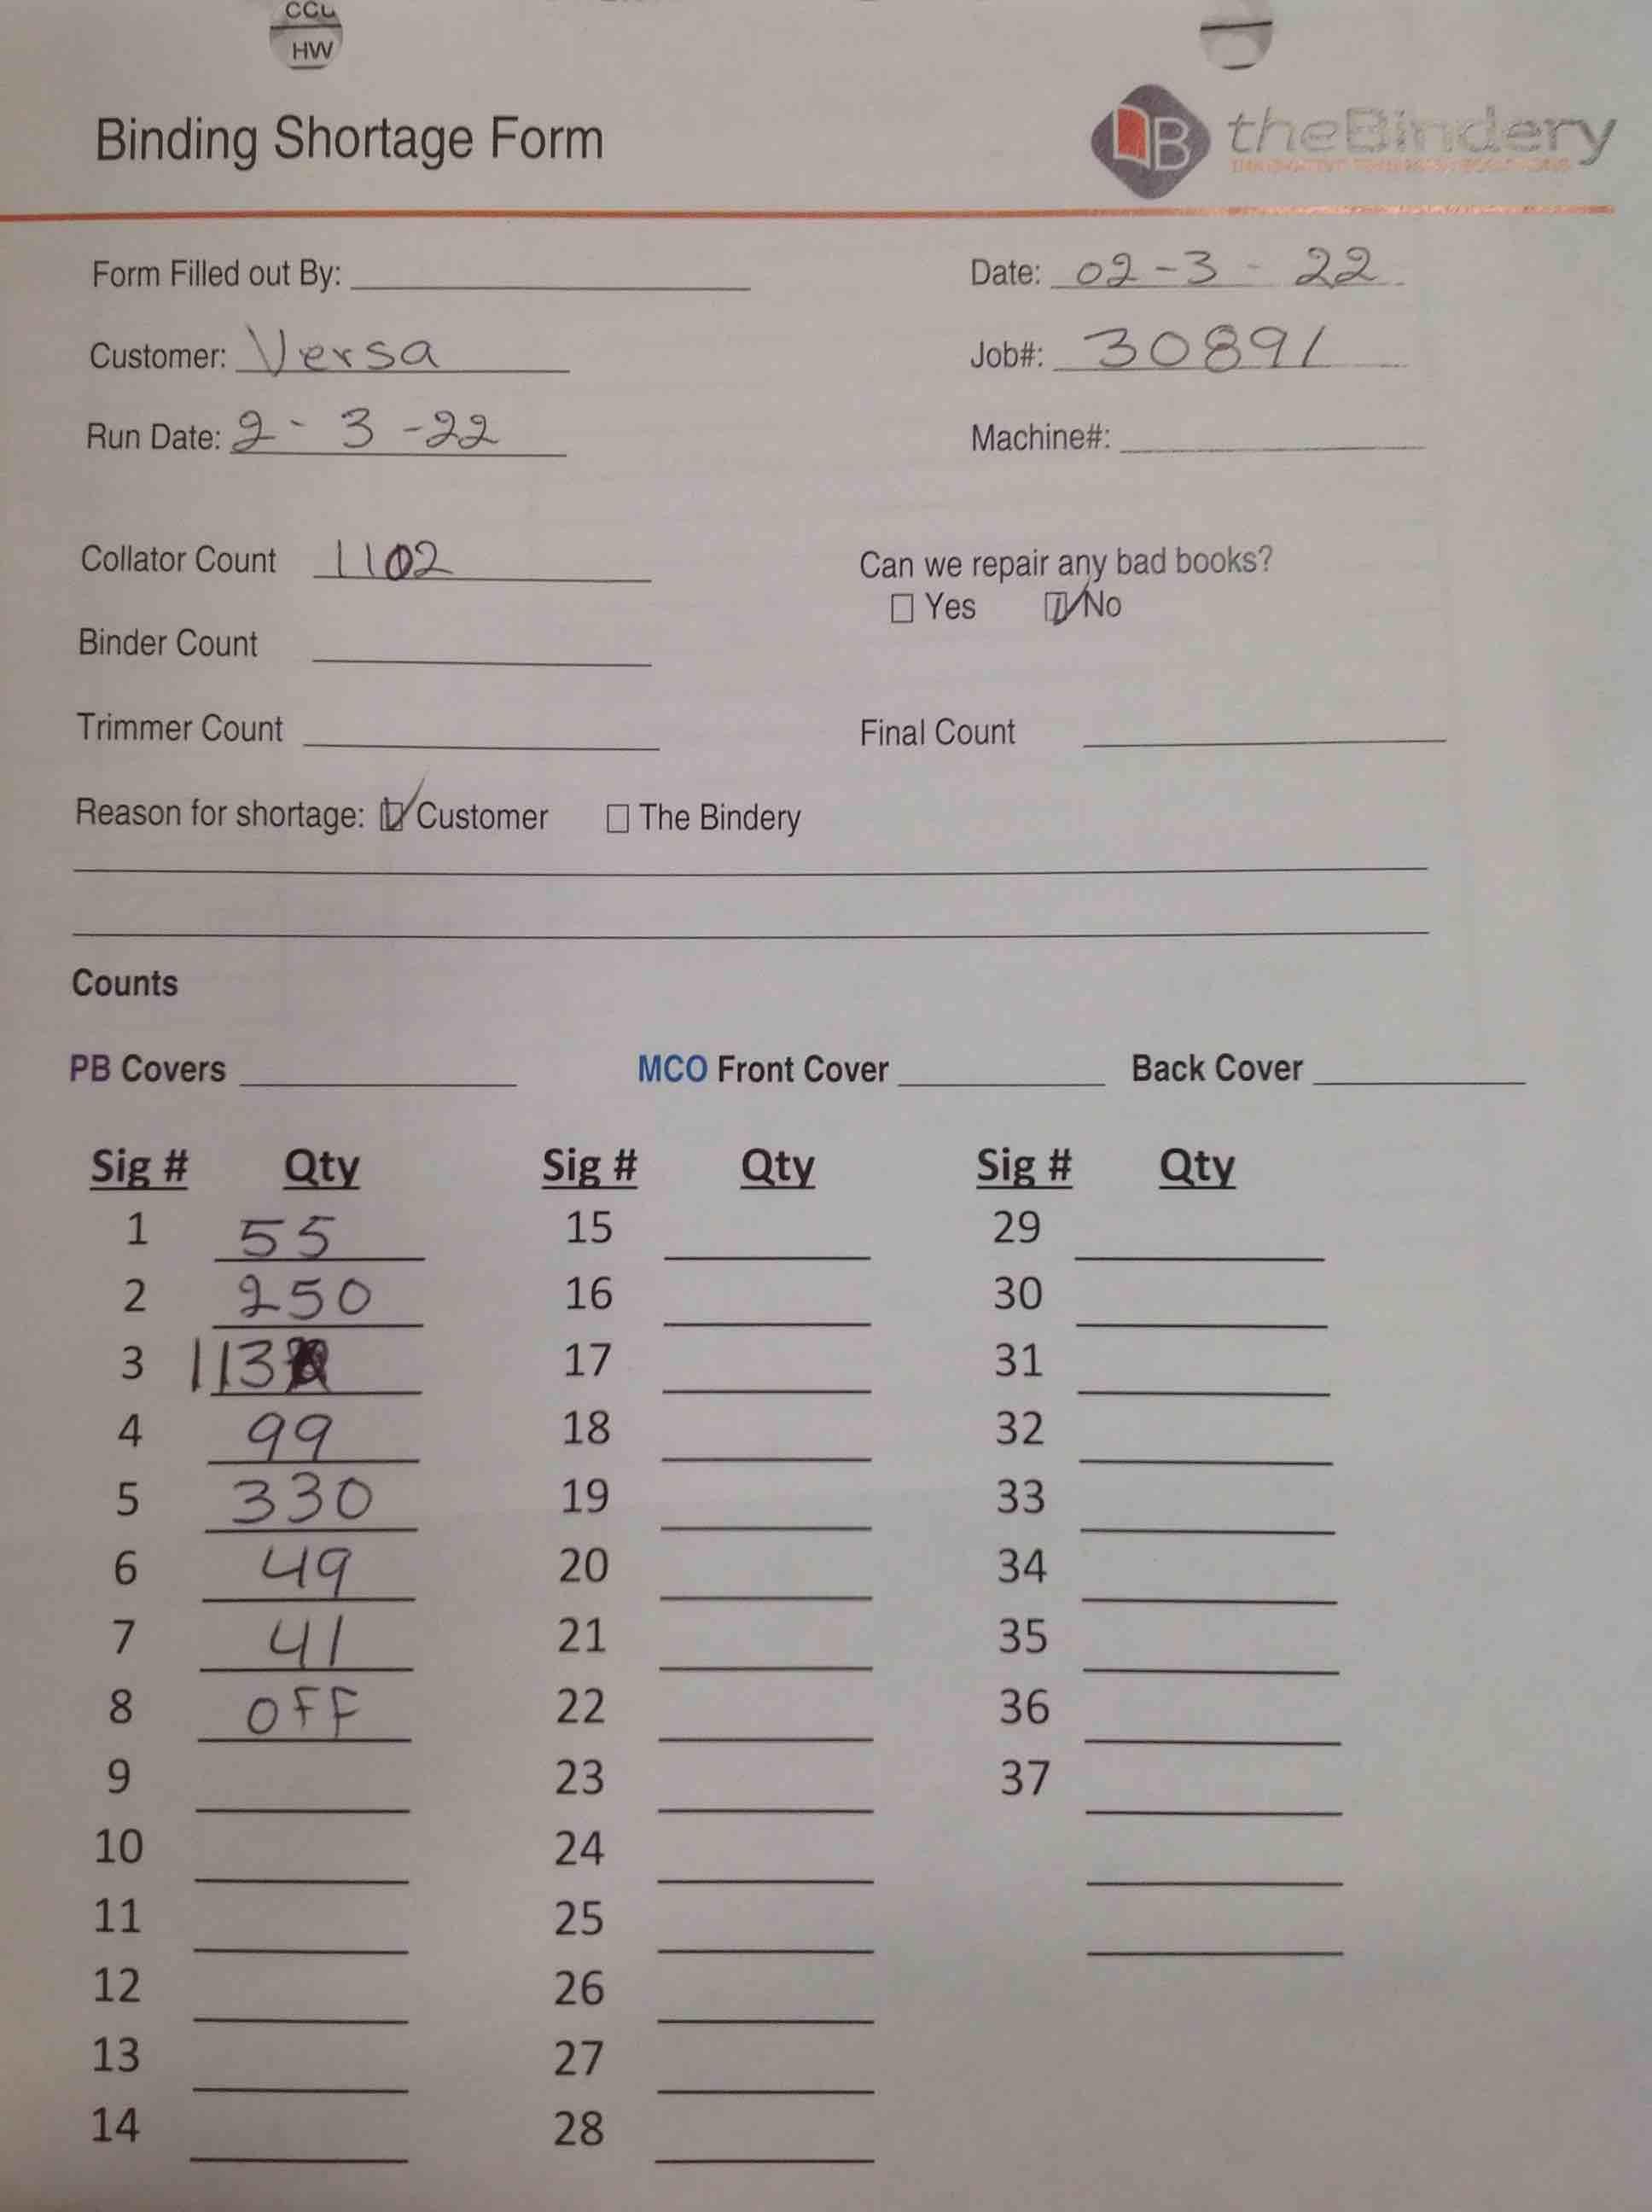 CCL
HW
Binding Shortage Form
theBindery
Form Filled out By: Date: 02-3-22
Customer: Versa Job#: 30891
Run Date: 2-3-22 Machine#:
Collator Count 1102 Can we repair any bad books?
Yes No
Binder Count
Trimmer Count Final Count
Reason for shortage: Customer The Bindery
Counts
PB Covers MCO Front Cover Back Cover
Sig # Qty Sig # Qty Sig # Qty
1 55 15 29
2 250 16 30
3 113 17 31
4 99 18 32
5 330 19 33
6 49 20 34
7 41 21 35
8 OFF 22 36
9 23 37
10 24
11 25
12 26
13 27
14 28